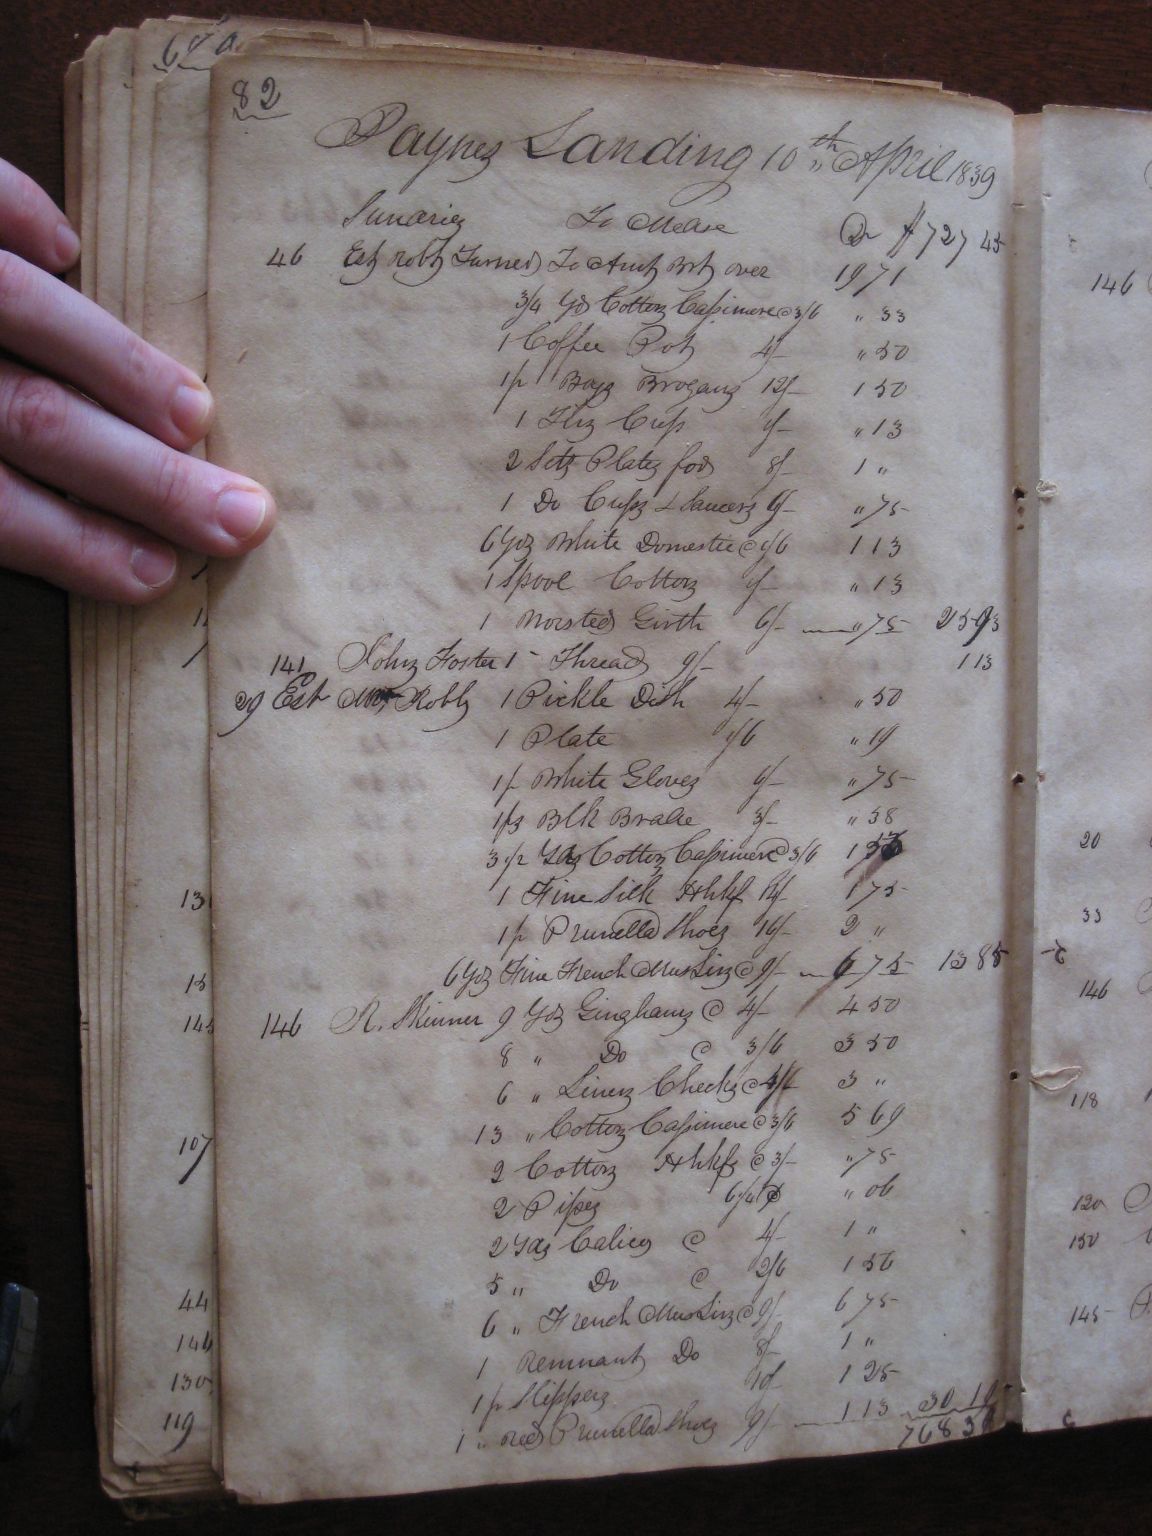 82
Paynes Landing 10th April 1839
Sundries To Mdse Dr $727 45
46 Est Robt Turner To Amt Brt over 19 71
3/4 Yd Cotton Cassimere @ 3/6 " 33
1 Coffee Pot 4/- " 50
1 pr Boys Brogans 12/- 1 50
1 Tin Cup 1/- " 13
2 Sets Plates for 8/- 1 "
1 Do Cups & Saucers 6/- " 75
6 Yds White Domestic @ 1/6 1 13
1 Spool Cotton 1/- " 13
1 Worsted Girth 6/- " 75 25 93
141 John Foster 1 Thread 9/- 1 13
29 Est Robt 1 Pickle Dish 4/- " 50
1 Plate 1/6 " 19
1 pr White Gloves 6/- " 75
Blk 3/- " 38
3 1/2 Yds Cotton Cassimere @ 3/6 1
1 Fine Silk Hhkf 14/- 1 75
1 pr Prunella Shoes 16/- 2 "
6 Yds Fine French Muslin @ 9/- 6 75 13 85
146 R. Skinner 9 Yds Ginghams @ 4/- 4 50
8 " Do @ 3/6 3 50
6 " Linen Checks @ 3 "
13 " Cotton Cassimere @ 3/6 5 69
2 Cotton Hhkfs @ 3/- " 75
2 Pipes " 06
2 Yds Calico @ 4/- 1 "
5 " Do @ 2/6 1 56
6 " French Muslin @ 9/- 6 75
1 Remnant Do 8/- 1 "
1 pr Slippers 10/- 1 25
1 " red Prunella Shoes 9/- 1 13 30 19
768
13
15
145
107
44
146
130
119
146
20
33
146
118
120
150
145